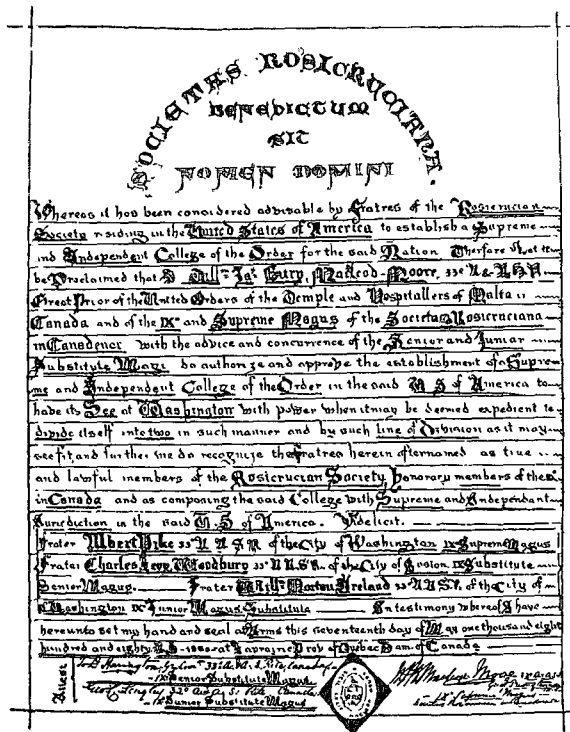 SOCIETAS ROSICRUCIANA.
BENEDICTUM
SIT
NOMEN DOMINI
Whereas it has been considered advisable by Fratres of the Rosicrucian
Society residing in the United States of America to establish a Supreme
and Independent College of the Order for the said Nation Therfore
be Proclaimed that I Will: Jas Bury, MacLeod-Moore, 33°
Great Prior of the United Orders of the Temple and Hospitallers of Malta
Canada and of the IX° and Supreme Magus of the Societas Rosicruciana
in Canadenci with the advice and concurrence of the Senior and Junior
Substitute Magi do authorize and approve the establishment of a Supre-
me and Independent College of the Order in the said U S of America to
have its See at Washington with power when it may be deemed expedient to
divide itself into two in such manner and by such line of Division as it may
see fit, and further we do recognize the Fratres herein afternamed as true
and lawful members of the Rosicrucian Society, honorary members of the
in Canada and as composing the said College with Supreme and Independant
Jurisdiction in the said U. S of America. Videlicit.
Frater Albert Pike 33° of the City of Washington IX Supreme Magus
Frater Charles Levi Woodbury 33° of the City of Boston IX Substitute
Senior Magus. Frater Will: Morton Ireland 33° of the City of
Washington IX° Junior Magus Substitute In testimony whereof I have
hereunto set my hand and seal at Arms this seventeenth day of May one thousand eight
hundred and eighty Prov of Quebec Dom of Canada
Attest
IX Senior Substitute Magus
Canada
IX Junior Substitute Magus